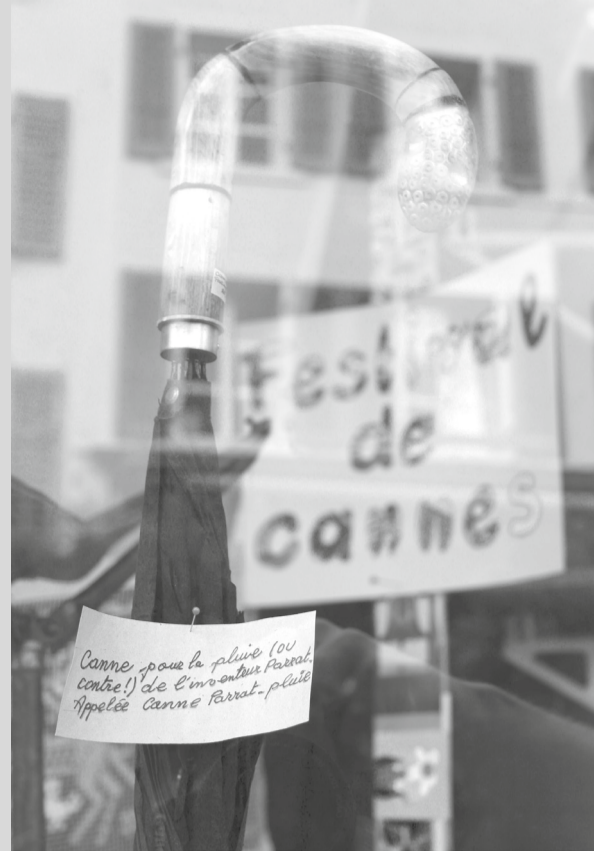 Festival
de
cannes
Canne pour la pluie (ou
contre!) de l'inventeur Parrat.
Appelée Canne Parrat-pluie